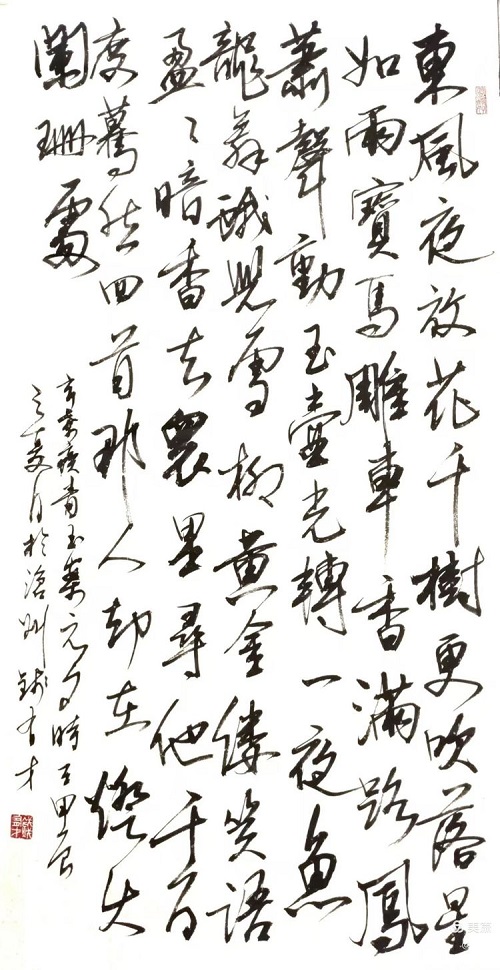 東風夜放花千樹更吹落星
如雨寶馬雕車香滿路鳳
蕭聲動玉壺光轉一夜魚
龍舞蛾兒雪柳黄金縷笑語
盈〻暗香去衆里尋他千百
度驀然回首那人却在燈火
闌珊處
辛棄疾青玉案元夕時在甲辰
之夏月於滄州